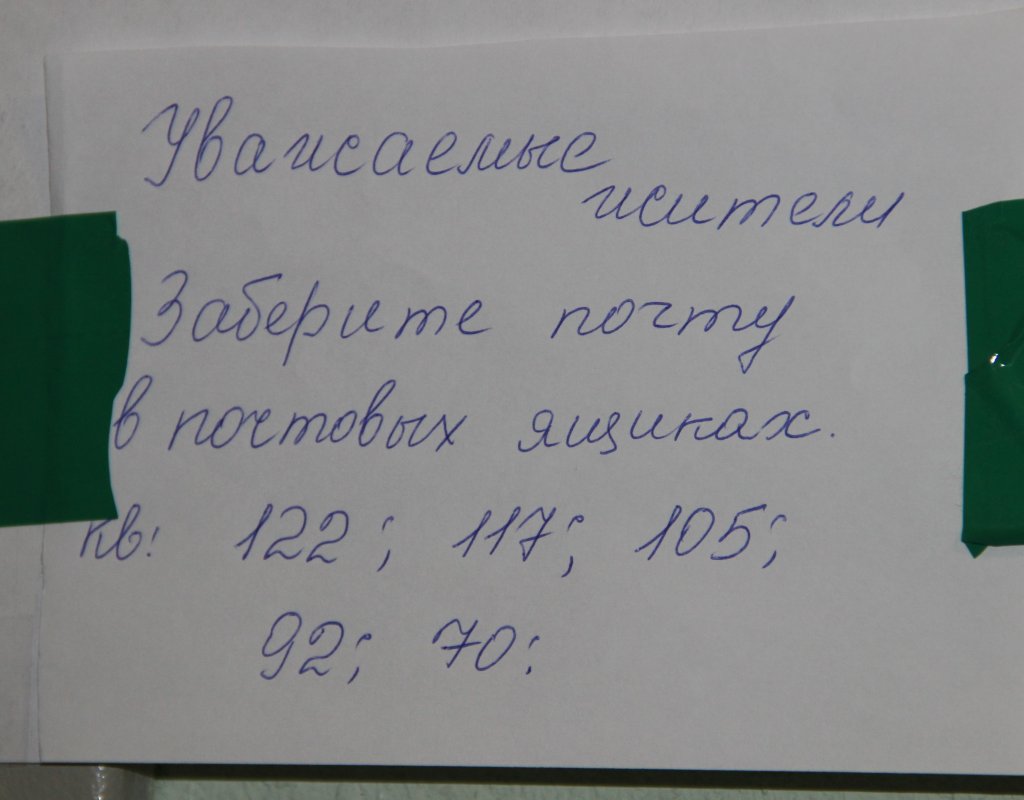 Уважаемые
жители
Заберите почту
в почтовых ящиках.
кв: 122; 117; 105;
92; 70;